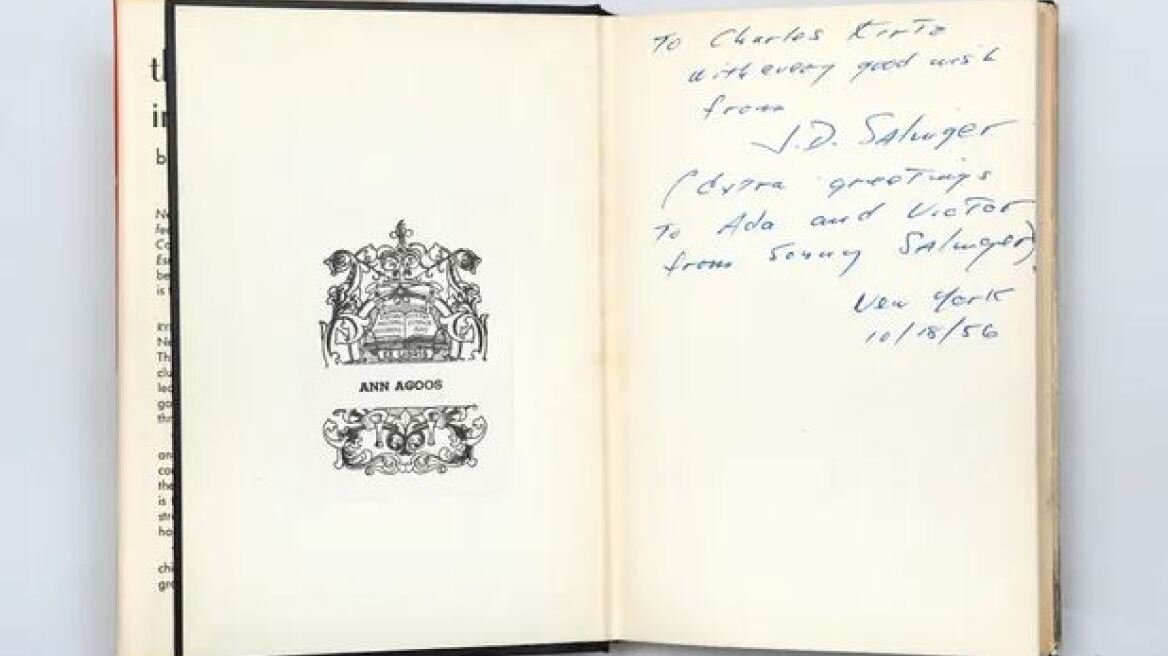 th
in
b
Ne
fee
Co
Est
be
is t
Ne
Th
clu
led
go
thr
an
co
the
is t
str
ho
chi
gre
EX LIBRIS
ANN AGOOS
To Charles Kirtz
with every good wish
from
J.D. Salinger
(Extra greetings
To Ada and Victor
from Sonny Salinger)
New York
10/18/56